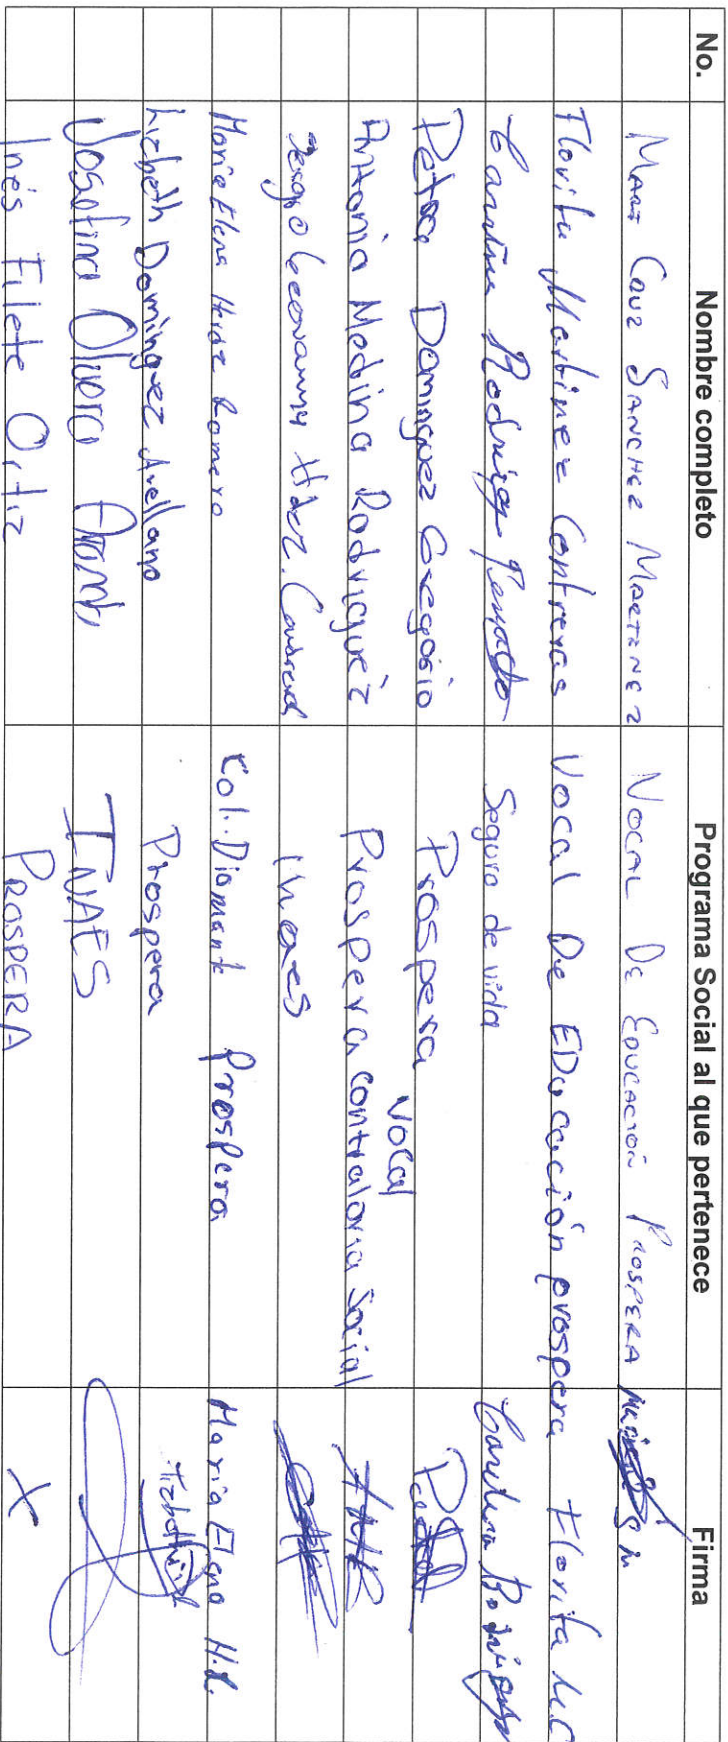 No. Nombre completo Programa Social al que pertenece Firma
Mari Cruz Sanchez Martinez Vocal De Educacion Prospera
Florita Martinez Contreras Vocal De EDucación prospera Florita M.C
Carolina Rodriguez Seguro de vida Carolina Rodriguez
Petra Dominguez Gregorio Prospera
Antonia Medina Rodriguez Prospera Vocal contraloria Social AMR
Sergio Geovanny Hdez. Inaes
Maria Elena Hrdz Romero Col. Diamante Prospera Maria Elena H.R.
Lizbeth Dominguez Arellano Prospera
Josefina Olvera INAES
Inés Filete Ortiz PROSPERA X